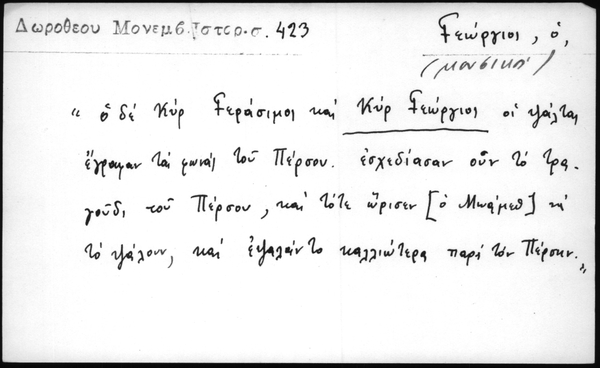 Δωροθεου Μονεμβ. Ιστορ. σ. 423
Γεώργιος, ὁ,
(μουσικός)
« ὁ δέ Κύρ Γεράσιμος καί Κύρ Γεώργιος οἱ ψάλται
ἔγραψαν τάς φωνάς τοῦ Πέρσου. ἐσχεδίασαν οὖν τό τρα-
γοῦδι τοῦ Πέρσου, καί τότε ὥρισεν [ὁ Μωάμεθ] νά
τό ψάλουν, καί ἐψαλάν το καλλιώτερα παρά τόν Πέρσην. »